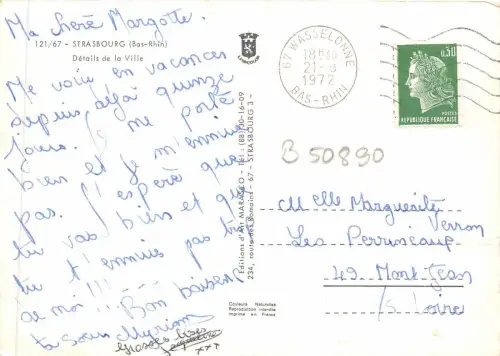 Ma cherè Margotte.
121/67 - STRASBOURG (Bas-Rhin)
Détails de la Ville
Me voici en vacances
depuis déjà quinze
jours. Je me porte
bien et je m'ennuie
pas. J'esperè que
tu vas bien et que
tu t'ennuies pas trop
de moi !!! Bon baisers
ta soeur Myriam
Grosses bises
xxx
LA CIGOGNE
Editions d'Art MARASCO - Tél : (88) 30-16-09
234, route des Romains - 67 - STRASBOURG 3 -
Couleurs Naturelles
Reproduction interdite
Imprimé en France
67 WASSELONNE
18H30
21-8
1972
BAS-RHIN
0,30
POSTES
REPUBLIQUE FRANÇAISE
B 50890
Melle Marguerite
Verron
Les Perruscaup
49 Mont-Jean
/s Loire